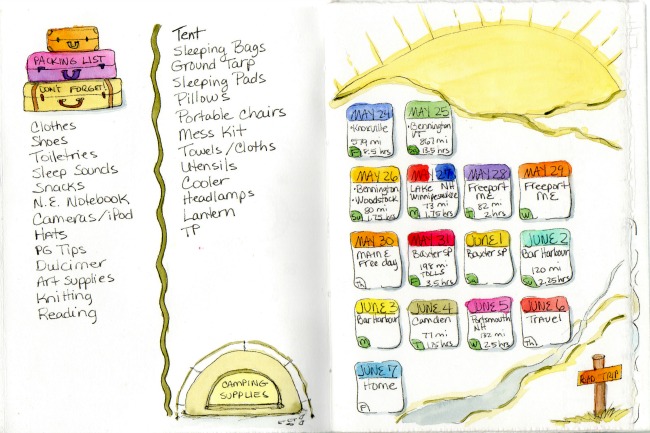 PACKING LIST
DON'T FORGET!
Clothes
Shoes
Toiletries
Sleep Sounds
Snacks
N.E. Notebook
Cameras/iPod
Hats
PG Tips
Dulcimer
Art Supplies
Knitting
Reading
Tent
Sleeping Bags
Ground Tarp
Sleeping Pads
Pillows
Portable Chairs
Mess Kit
Towels/Cloths
Utensils
Cooler
Headlamps
Lantern
TP
CAMPING
SUPPLIES
MAY 24
•Knoxville
579 mi
F 8.5 hrs
MAY 25
•Bennington
VT
867 mi
Sa 13.5 hrs
MAY 26
•Bennington
•Woodstock
90 mi
Su 1.75 hrs
MAY 27
LAKE NH
Winnipesaukee
73 mi
M 1.75 hrs
MAY 28
Freeport
ME
82 mi
T 2 hrs
MAY 29
Freeport
ME
W
MAY 30
MAINE
Free day
Th
MAY 31
Baxter SP
198 mi
TOLLS
F 3.5 hrs
JUNE 1
Baxter SP
Sa
JUNE 2
Bar Harbour
120 mi
Su 2.25 hrs
JUNE 3
Bar Harbour
M
JUNE 4
Camden
77 mi
T 1.75 hrs
JUNE 5
Portsmouth
NH
132 mi
W 2.5 hrs
JUNE 6
Travel
Th
JUNE 7
Home
F
ROAD TRIP